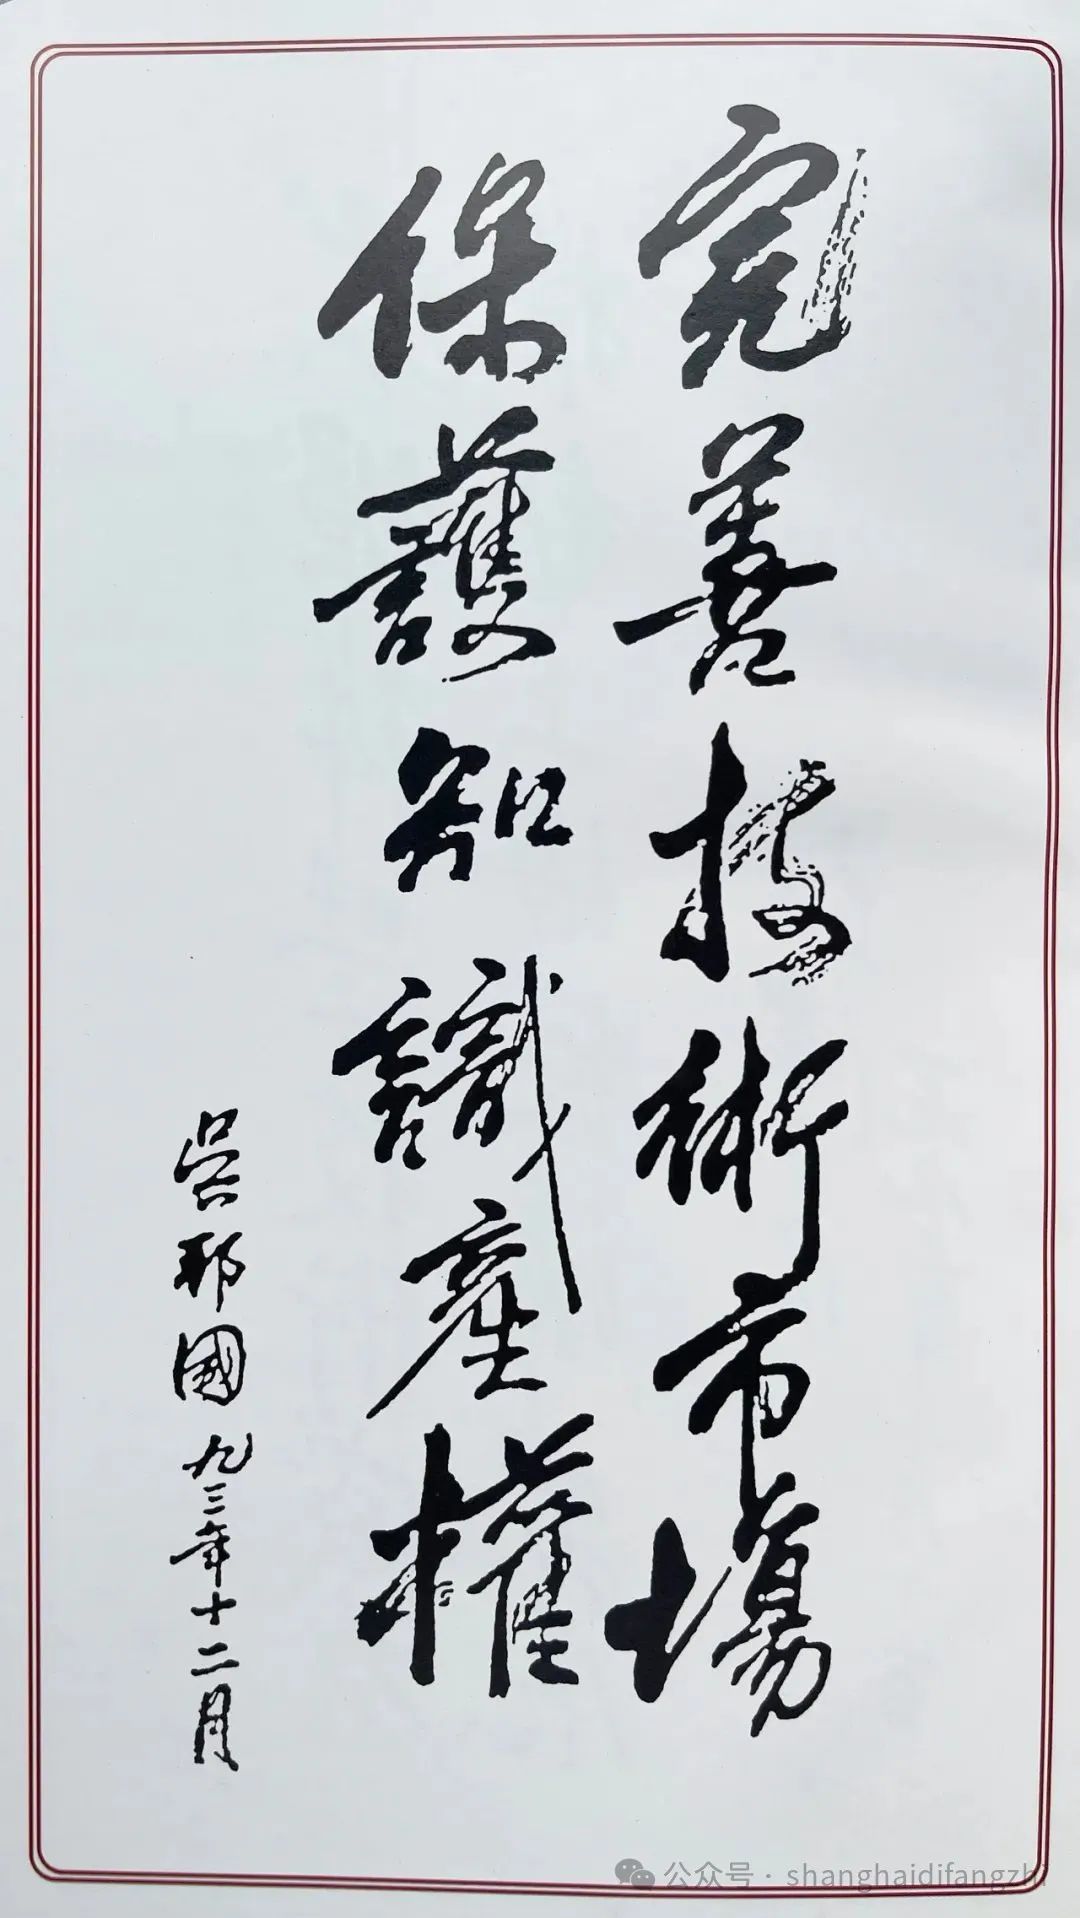 完善技術市場
保護知識產權
吳邦國 九三年十二月
公众号 · shanghaidifangzhi